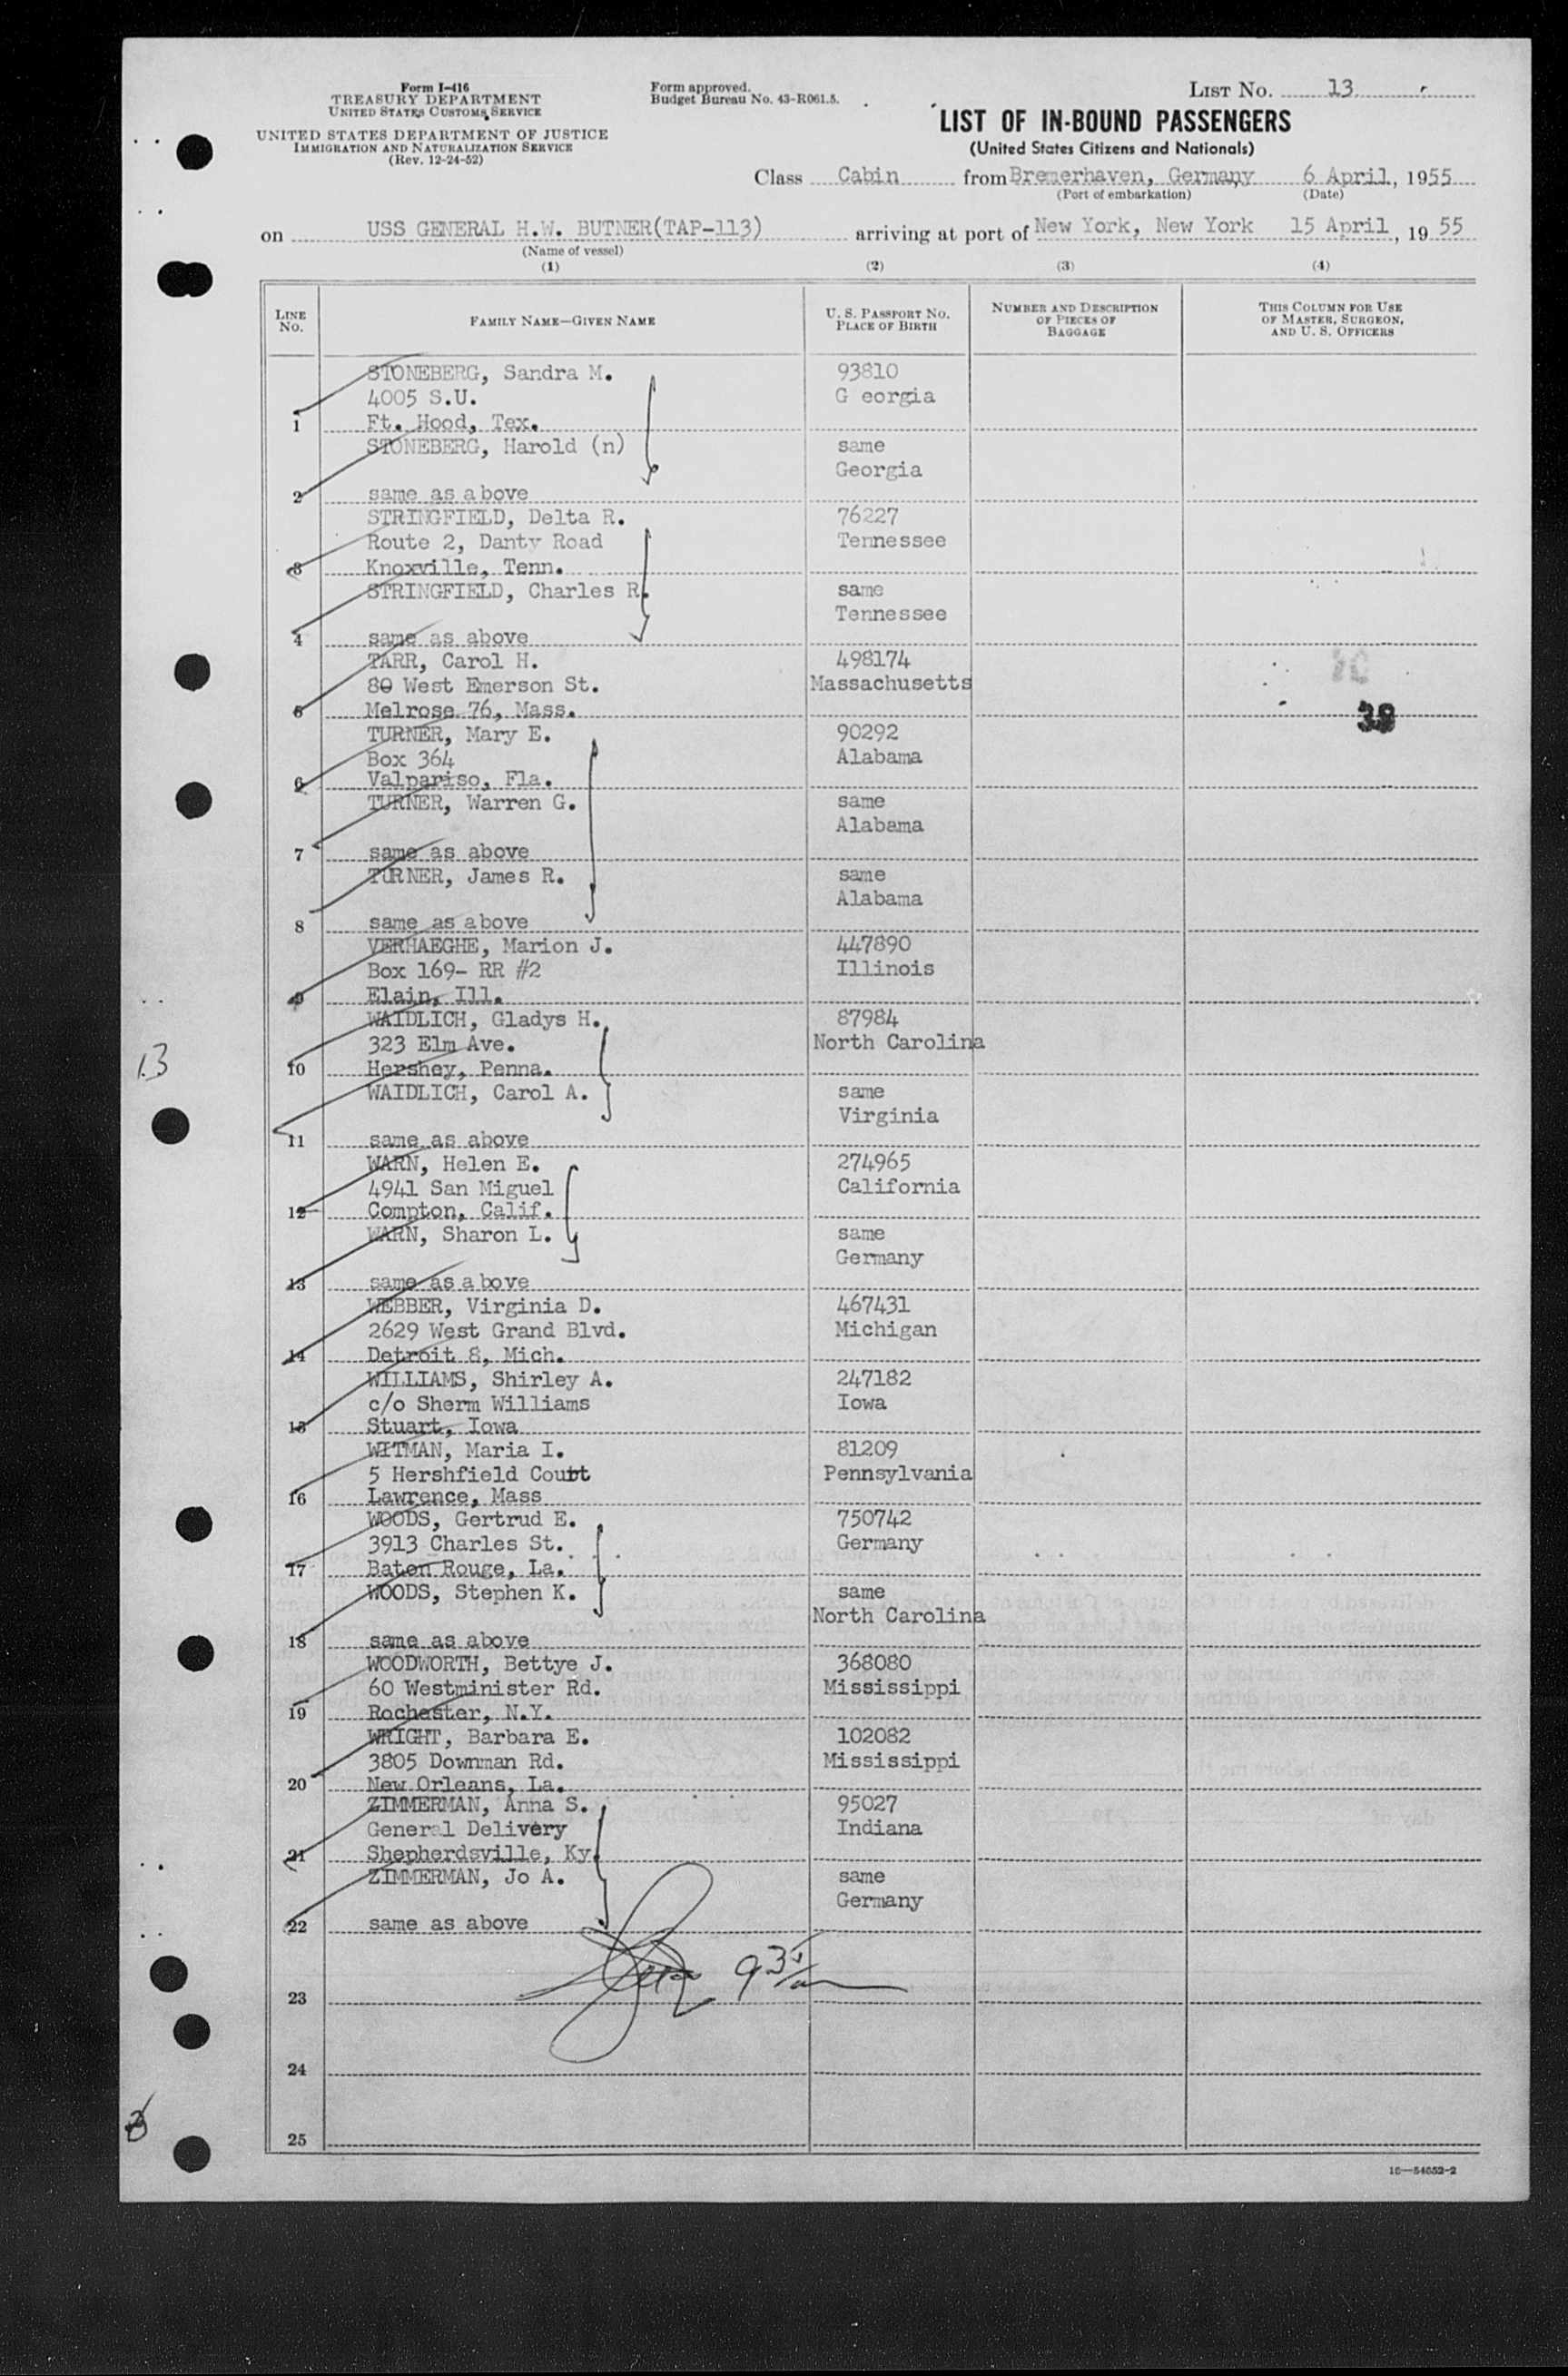 Form I-416
TREASURY DEPARTMENT
UNITED STATES CUSTOMS SERVICE
UNITED STATES DEPARTMENT OF JUSTICE
IMMIGRATION AND NATURALIZATION SERVICE
(Rev. 12-24-52)
Form approved.
Budget Bureau No. 43-R061.5.
LIST No. 13
LIST OF IN-BOUND PASSENGERS
(United States Citizens and Nationals)
Class Cabin from Bremerhaven, Germany 6 April, 1955
(Port of embarkation) (Date)
on USS GENERAL H.W. BUTNER(TAP-113) arriving at port of New York, New York 15 April, 1955
(Name of vessel)
(1) (2) (3) (4)
LINE No. FAMILY NAME—GIVEN NAME U. S. PASSPORT NO. PLACE OF BIRTH NUMBER AND DESCRIPTION OF PIECES OF BAGGAGE THIS COLUMN FOR USE OF MASTER, SURGEON, AND U. S. OFFICERS
STONEBERG, Sandra M. 93810
4005 S.U. G eorgia
1 Ft. Hood, Tex.
STONEBERG, Harold (n) same
Georgia
2 same as above
STRINGFIELD, Delta R. 76227
Route 2, Danty Road Tennessee
3 Knoxville, Tenn.
STRINGFIELD, Charles R. same
Tennessee
4 same as above
TARR, Carol H. 498174
80 West Emerson St. Massachusetts
5 Melrose 76, Mass. 38
TURNER, Mary E. 90292
Box 364 Alabama
6 Valpariso, Fla.
TURNER, Warren G. same
Alabama
7 same as above
TURNER, James R. same
Alabama
8 same as above
VERHAEGHE, Marion J. 447890
Box 169- RR #2 Illinois
9 Elain, Ill.
WAIDLICH, Gladys H. 87984
323 Elm Ave. North Carolina
13
10 Hershey, Penna.
WAIDLICH, Carol A. same
Virginia
11 same as above
WARN, Helen E. 274965
4941 San Miguel California
12 Compton, Calif.
WARN, Sharon L. same
Germany
13 same as above
WEBBER, Virginia D. 467431
2629 West Grand Blvd. Michigan
14 Detroit 8, Mich.
WILLIAMS, Shirley A. 247182
c/o Sherm Williams Iowa
15 Stuart, Iowa
WITMAN, Maria I. 81209
5 Hershfield Court Pennsylvania
16 Lawrence, Mass
WOODS, Gertrud E. 750742
3913 Charles St. Germany
17 Baton Rouge, La.
WOODS, Stephen K. same
North Carolina
18 same as above
WOODWORTH, Bettye J. 368080
60 Westminister Rd. Mississippi
19 Rochester, N.Y.
WRIGHT, Barbara E. 102082
3805 Downman Rd. Mississippi
20 New Orleans, La.
ZIMMERMAN, Anna S. 95027
General Delivery Indiana
21 Shepherdsville, Ky.
ZIMMERMAN, Jo A. same
Germany
22 same as above
23
24
25
16—54652-2